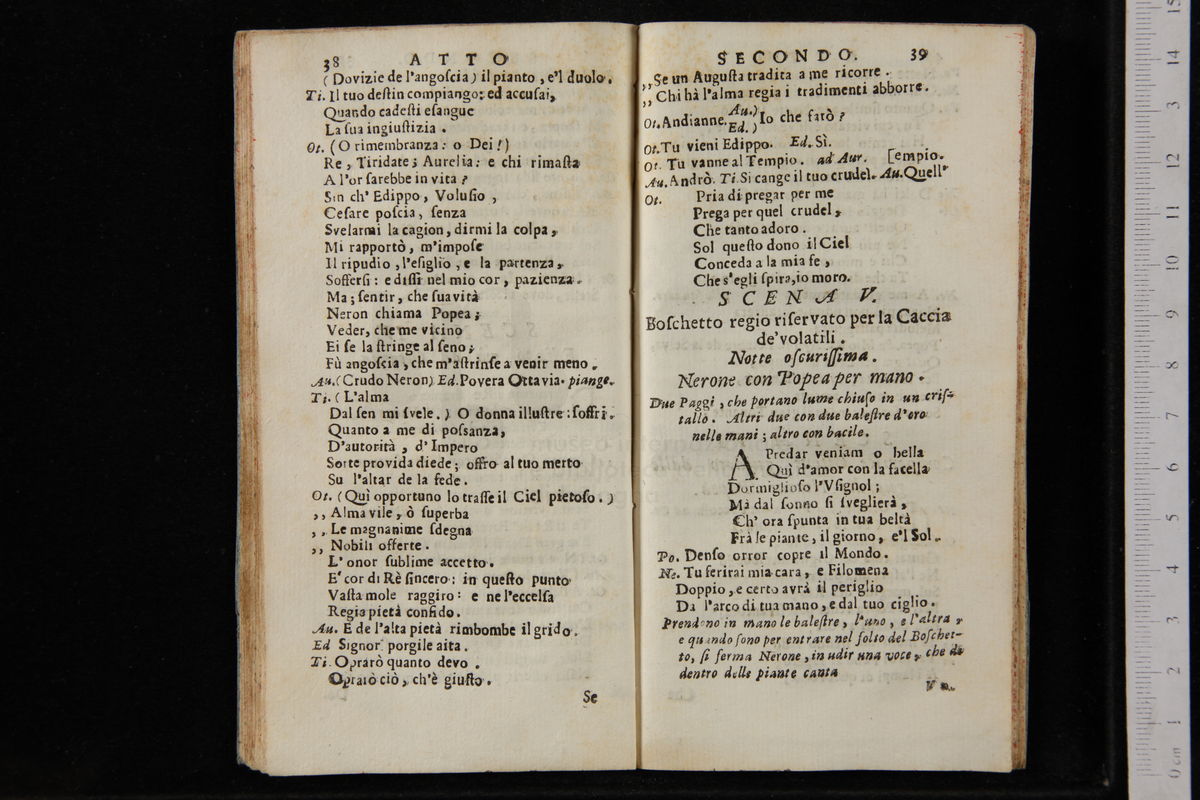 38 ATTO
(Dovizie de l'angoſcia) il pianto, e'l duolo.
Ti. Il tuo deſtin compiango: ed accuſai,
Quando cadeſti eſangue
La ſua ingiuſtizia.
Ot. (O rimembranza: o Dei!)
Re, Tiridate; Aurelia: e chi rimaſta
A l'or ſarebbe in vita?
Sin ch' Edippo, Voluſio,
Ceſare poſcia, ſenza
Svelarmi la cagion, dirmi la colpa,
Mi rapportò, m'impoſe
Il ripudio, l'eſiglio, e la partenza,
Soffersi: e diſſi nel mio cor, pazienza.
Ma; ſentir, che ſuavità
Neron chiama Popea;
Veder, che me vicino
Ei ſe la ſtringe al ſeno;
Fù angoſcia, che m'aſtrinſe a venir meno.
Au. (Crudo Neron) Ed. Povera Ottavia. piange.
Ti. (L'alma
Dal ſen mi ſvele.) O donna illuſtre: ſoffri.
Quanto a me di poſsanza,
D'autorità, d'Impero
Sorte provida diede; offro al tuo merto
Su l'altar de la fede.
Ot. (Quì opportuno lo traſſe il Ciel pietoſo.)
,, Alma vile, ò ſuperba
,, Le magnanime ſdegna
,, Nobili offerte.
L'onor ſublime accetto.
E' cor di Rè ſincero: in queſto punto
Vaſta mole raggiro: e ne l'eccelſa
Regia pietà confido.
Au. E de l'alta pietà rimbombe il grido.
Ed Signor porgile aita.
Ti. Oprarò quanto devo.
Oprarò ciò, ch'è giuſto.
Se
SECONDO. 39
,, Se un Auguſta tradita a me ricorre.
,, Chi hà l'alma regia i tradimenti abborre.
Ot. Andianne. Au.) Ed.) Io che farò?
Ot. Tu vieni Edippo. Ed. Sì.
Ot. Tu vanne al Tempio. ad Aur. [empio.
Au. Andrò. Ti. Si cange il tuo crudel. Au. Quell'
Ot. Pria di pregar per me
Prega per quel crudel,
Che tanto adoro.
Sol queſto dono il Ciel
Conceda a la mia fe,
Che s'egli ſpira, io moro.
SCENA V.
Boſchetto regio riſervato per la Caccia
de' volatili.
Notte oſcuriſſima.
Nerone con Popea per mano.
Due Paggi, che portano lume chiuſo in un criſ-
tallo. Altri due con due baleſtre d'oro
nelle mani; altro con bacile.
A Predar veniam o bella
Quì d'amor con la facella
Dormiglioſo l'Vſignol;
Mà dal ſonno ſi ſveglierà,
Ch' ora ſpunta in tua beltà
Frà le piante, il giorno, e'l Sol.
Po. Denſo orror copre il Mondo.
Ne. Tu ferirai mia cara, e Filomena
Doppio, e certo avrà il periglio
Da l'arco di tua mano, e dal tuo ciglio.
Prendono in mano le baleſtre, l'uno, e l'altra,
e quando ſono per entrare nel folto del Boſchet-
to, ſi ferma Nerone, in udir una voce, che di
dentro delle piante canta